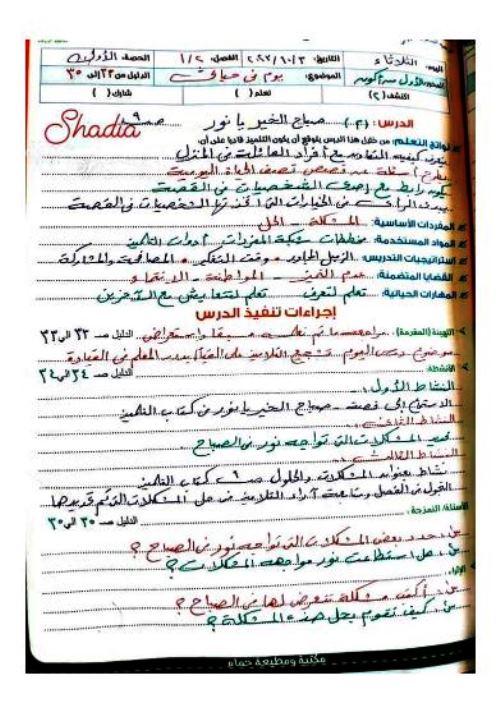 اليوم: الثلاثاء التاريخ: ٢٠٢٣/١٠/٣ الفصل: ١/٢ الصف: الأولى
المحور: الأول من أكون الموضوع: يوم فى حياتى الدليل من ٣٣ إلى ٣٥
اكتشف (٢) تعلم ( ) شارك ( )
Shadia
الدرس: (٣) صباح الخير يا نور صـ ٩
نواتج التعلم: من خلال هذا الدرس يتوقع أن يكون التلميذ قادرا على أن:
يتعرف كيفية التعاون مع أفراد العائلة فى المنزل
يطرح أسئلة عن قصص تصف الحياة اليومية
يكون رابط مع إحدى الشخصيات فى القصة
يبدى الرأى فى الخيارات التى اتخذتها الشخصيات فى القصة
المفردات الأساسية: المشكلة - الحل
المواد المستخدمة: مخططات شبكة المفردات أدوات التلميذ
استراتيجيات التدريس: الزميل المجاور - وقت التفكير - المصافحة والمشاركة
القضايا المتضمنة: عدم التمييز - المواطنة - الانتماء
المهارات الحياتية: تعلم لتعرف تعلم لتتعايش مع الآخرين
إجراءات تنفيذ الدرس
التهيئة (المقدمة): مراجعة ما تم تعلمه مسبقا واستعراض الدليل صـ ٣٣ الى ٣٣
موضوع درس اليوم وتشجيع التلاميذ على القيام بدور المعلم فى القيادة
الأنشطة: الدليل صـ ٣٤ الى ٣٤
النشاط الأول:
الاستماع إلى قصة صباح الخير يا نور من كتاب التلميذ
النشاط الثانى:
المشكلات التى تواجه نور فى الصباح
النشاط الثالث:
نشاط بعنوان المشكلات والحلول صـ ٩ كتاب التلميذ
التجول فى الفصل ومتابعة آراء التلاميذ فى حل المشكلات التى تم تحديدها
الأسئلة النموذجية: الدليل صـ ٣٥ الى ٣٥
س: حدد بعض المشكلات التى تواجه نور فى الصباح؟
س: هل استطاعت نور مواجهة المشكلات؟
س: أكتب مشكلة تتعرض لها فى الصباح؟
س: كيف تقوم بحل هذه المشكلة؟
مكتبة ومطبعة حمام